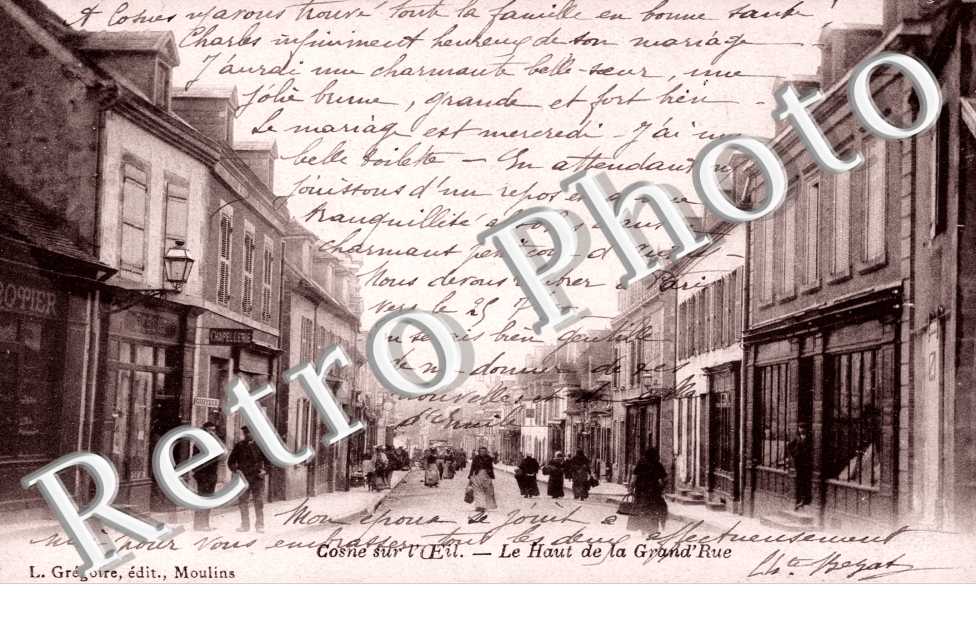 A Cosne n'avons trouvé toute la famille en bonne santé
Charles infiniment heureux de son mariage
J'aurai une charmante belle-sœur, une
jolie brune, grande et fort bien
Le mariage est mercredi - J'ai une
belle toilette - En attendant n
jouissons d'un repos et d'une
tranquillité dans
charmant petit coin d
Nous devons rentrer à Paris
vers le 25
bien gentille
de me donner de ses
nouvelles et
d'Emile
Mon époux se joint à
moi pour vous embrasser tous les deux affectueusement
Chte Begat
OTIER
CHAPELLERIE
Retro Photo
Cosne sur l'Œil. — Le Haut de la Grand'Rue
L. Grégoire, édit., Moulins